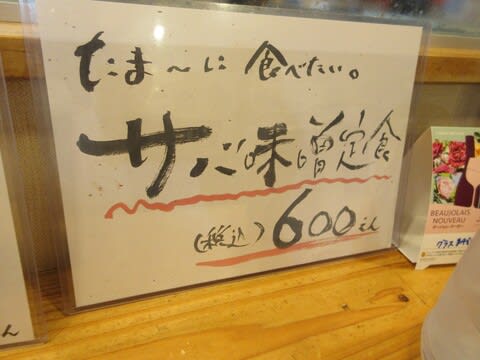 たま〜に 食べたい。
サバ味噌定食
(税込) 600えん
BEAUJOLAIS
NOUVEAU
グラス
ん